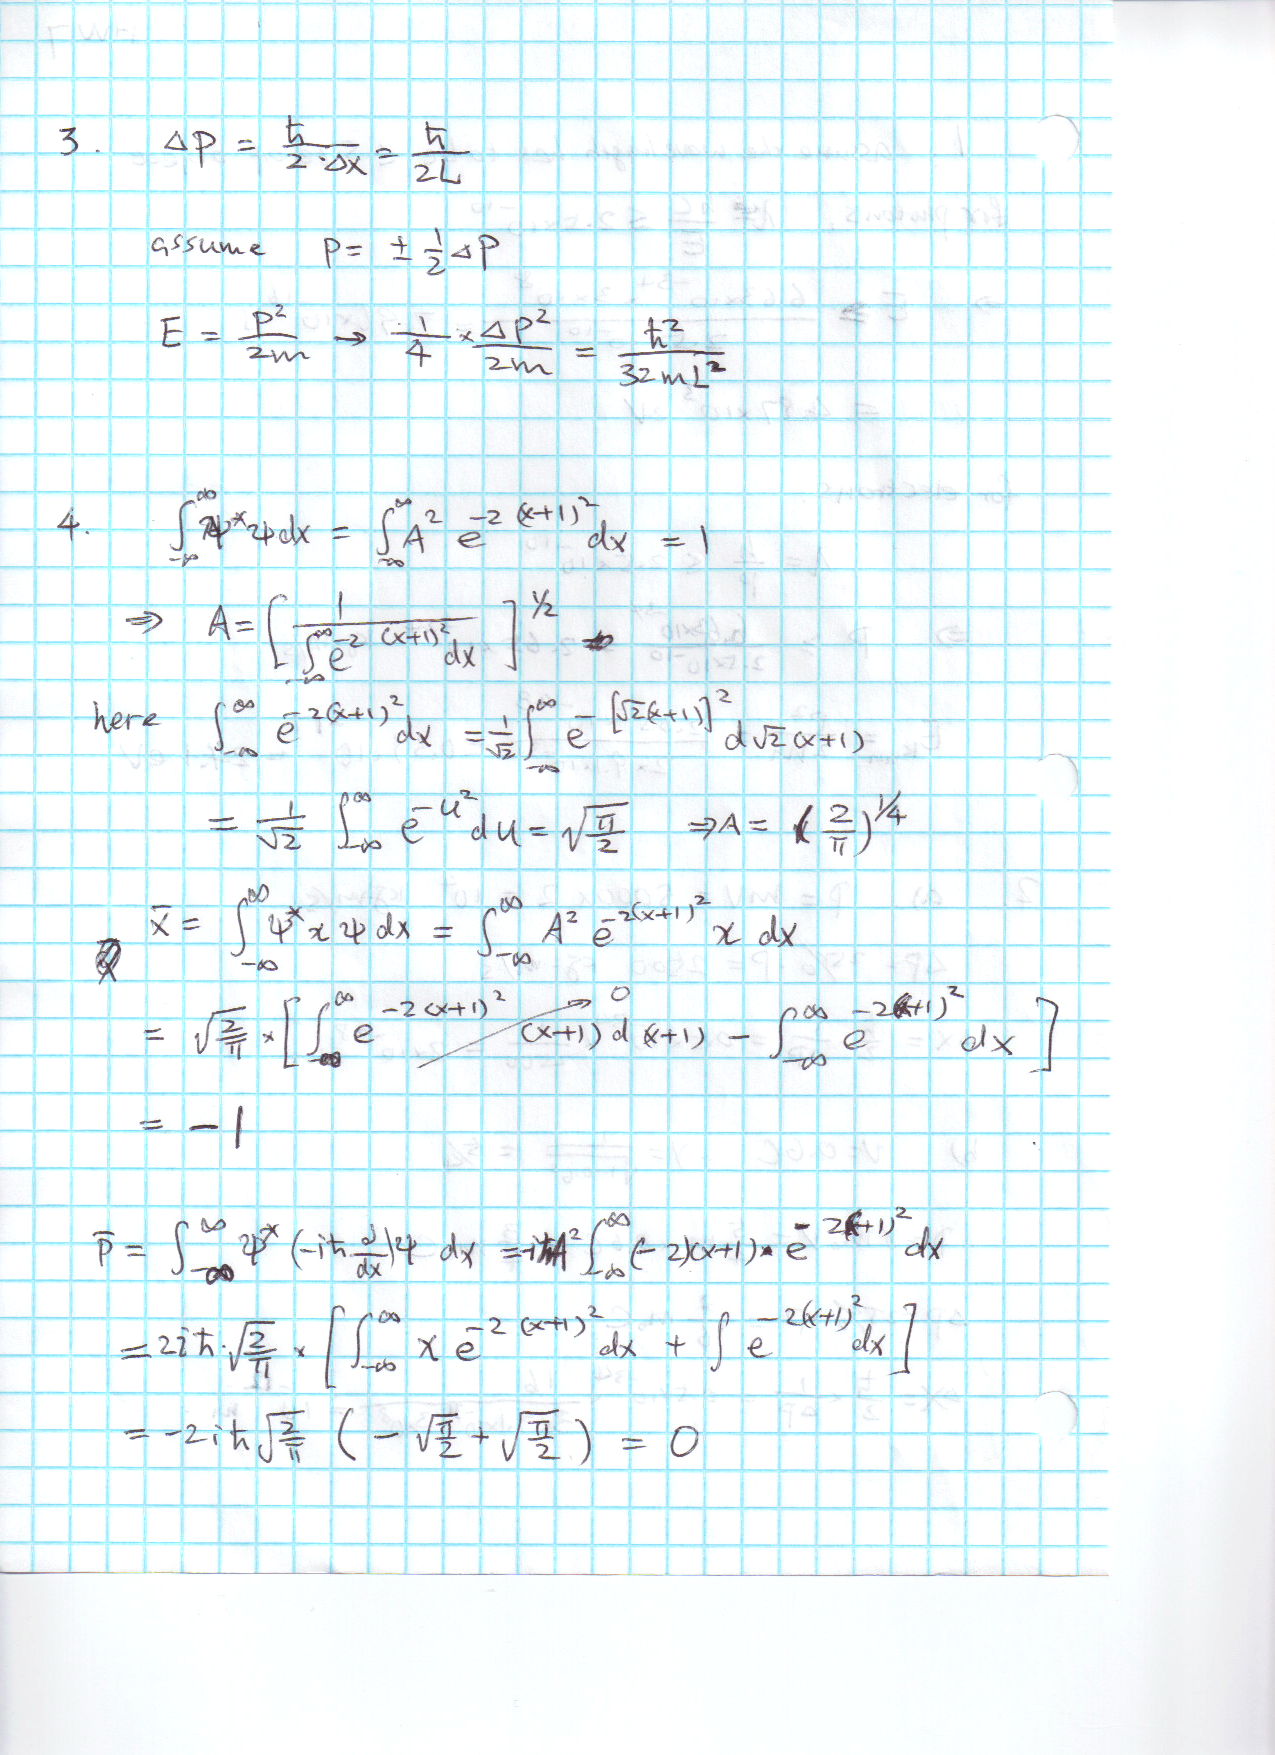 3. ΔP = ħ / (2·Δx) = ħ / 2L
assume P = ± 1/2 ΔP
E = P² / 2m → 1/4 × ΔP² / 2m = ħ² / 32mL²
4. ∫_{-∞}^{∞} ψ* ψ dx = ∫_{-∞}^{∞} A² e^{-2(x+1)²} dx = 1
⇒ A = [ 1 / ∫_{-∞}^{∞} e^{-2(x+1)²} dx ]^{1/2}
here ∫_{-∞}^{∞} e^{-2(x+1)²} dx = 1/√2 ∫_{-∞}^{∞} e^{-[√2(x+1)]²} d√2(x+1)
= 1/√2 ∫_{-∞}^{∞} e^{-u²} du = √(π/2) ⇒ A = (2/π)^{1/4}
x̄ = ∫_{-∞}^{∞} ψ* x ψ dx = ∫_{-∞}^{∞} A² e^{-2(x+1)²} x dx
= √(2/π) × [ ∫_{-∞}^{∞} e^{-2(x+1)²} (x+1) d(x+1) → 0 - ∫_{-∞}^{∞} e^{-2(x+1)²} dx ]
= -1
p̄ = ∫_{-∞}^{∞} ψ* (-iħ d/dx) ψ dx = -iħA² ∫_{-∞}^{∞} (-2)(x+1)· e^{-2(x+1)²} dx
= 2iħ·√(2/π) × [ ∫_{-∞}^{∞} x e^{-2(x+1)²} dx + ∫ e^{-2(x+1)²} dx ]
= -2iħ √(2/π) ( -√(π/2) + √(π/2) ) = 0